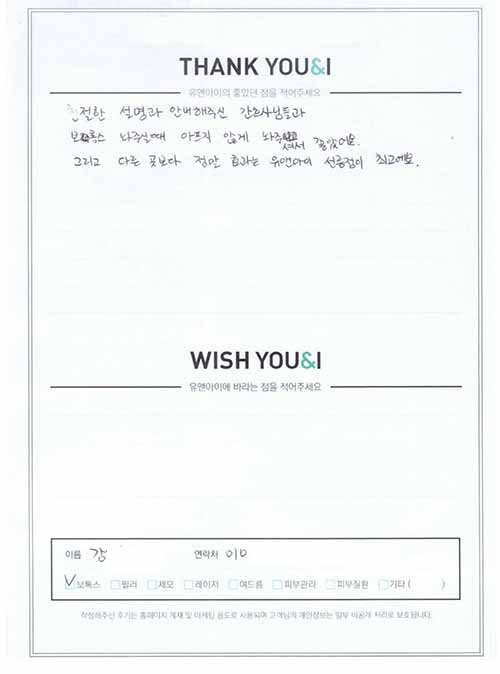 THANK YOU&I
유앤아이의 좋았던 점을 적어주세요
친절한 설명과 안내해주신 간호사님들과
보톡스 놔주실때 아프지 않게 놔주셔서 좋았어요.
그리고 다른 곳보다 정말 효과는 유앤아이 선릉점이 최고에요.
WISH YOU&I
유앤아이에 바라는 점을 적어주세요
이름 강 연락처 010
보톡스 필러 제모 레이저 여드름 피부관리 피부질환 기타 ( )
작성해주신 후기는 홈페이지 게재 및 마케팅 용도로 사용되며 고객님의 개인정보는 일부 비공개 처리로 보호됩니다.